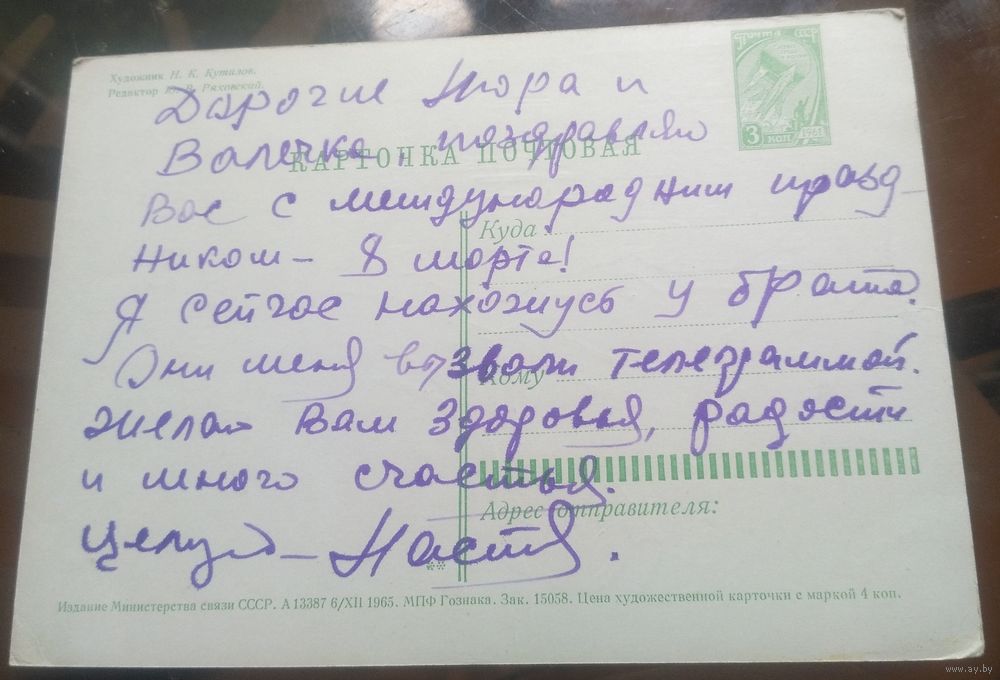 Художник Н. К. Кутилов.
Редактор Ю. В. Ряховский.
ПОЧТА СССР
3 КОП 1961
КАРТОЧКА ПОЧТОВАЯ
Дорогие Нюра и
Валечка, поздравляю
Вас с международним празд-
ником – 8 марта!
Я сейчас нахожусь у брата.
Они меня вызвали телеграммой.
Желаю Вам здоровья, радости
и много счастья.
Целую – Настя.
Куда
Кому
Адрес отправителя:
Издание Министерства связи СССР. А 13387 6/XII 1965. МПФ Гознака. Зак. 15058. Цена художественной карточки с маркой 4 коп.
www.ay.by